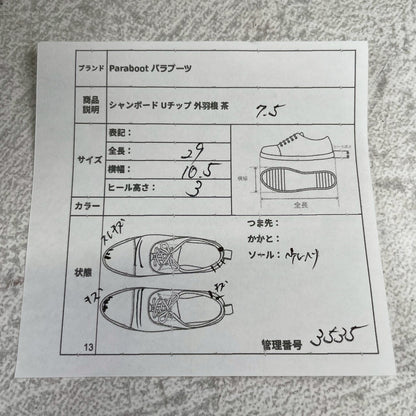 ブランド Paraboot パラブーツ
商品説明 シャンボード Uチップ 外羽根 茶 7.5
サイズ
表記：
全長： 29
横幅： 10.5
ヒール高さ： 3
横幅
全長
カラー
状態
スレキズ
キズ
キズ
つま先：
かかと：
ソール：
13
管理番号 3535